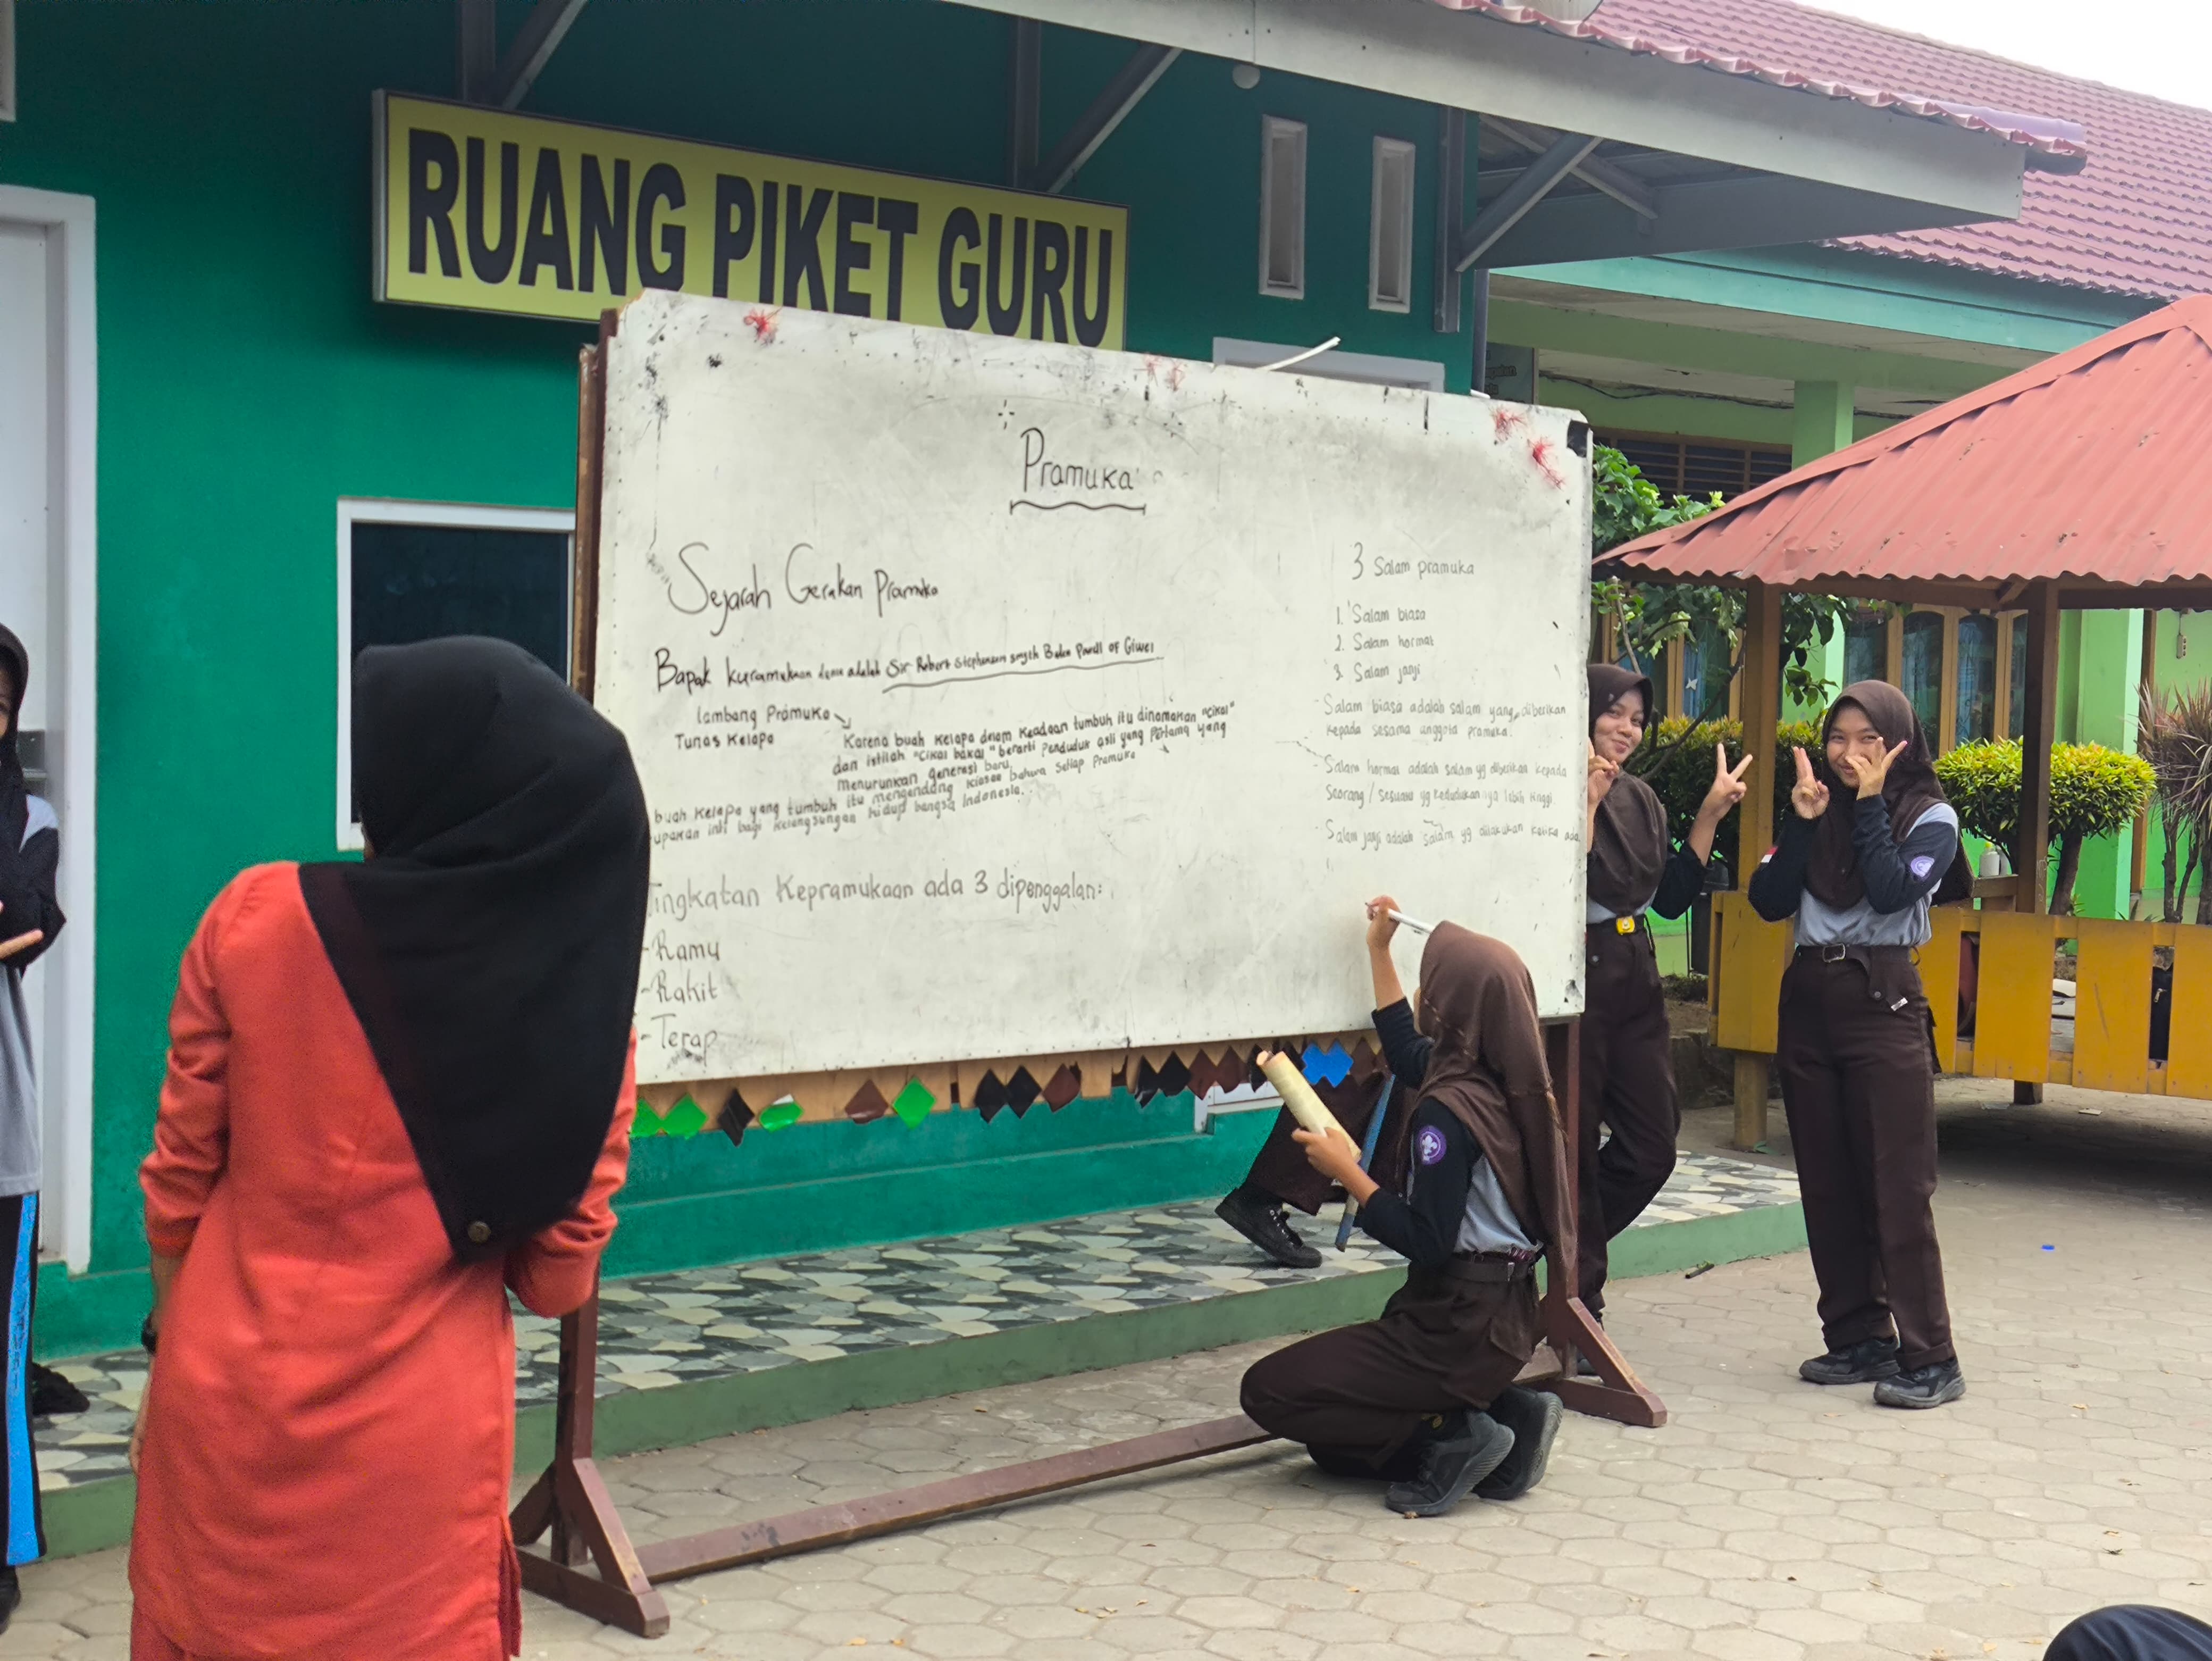 RUANG PIKET GURU
Pramuka
Sejarah Gerakan Pramuka
Bapak kuramukaan adalah Sir Robert Stephenson smyth Baden Powell OF Giwel
lambang Pramuka
Tunas Kelapa
Karena buah Kelapa dalam Keadaan tumbuh itu dinamakan "Cikal"
dan istilah "Cikal bakal" berarti Penduduk asli yang Pertama yang
Menurunkan generasi baru.
buah Kelapa yang tumbuh itu mengandung Kiasan bahwa Setiap Pramuka
upakan inti bagi Kelangsungan hidup bangsa Indonesia.
Tingkatan Kepramukaan ada 3 dipenggalan:
-Ramu
-Rakit
-Terap
3 Salam pramuka
1. Salam biasa
2. Salam hormat
3. Salam janji
- Salam biasa adalah salam yang diberikan
kepada sesama anggota pramuka.
- Salam hormat adalah salam yg diberikan kepada
Seorang / Sesuatu yg Kedudukannya lebih tinggi
- Salam janji adalah Salam yg dilakukan Ketika ada